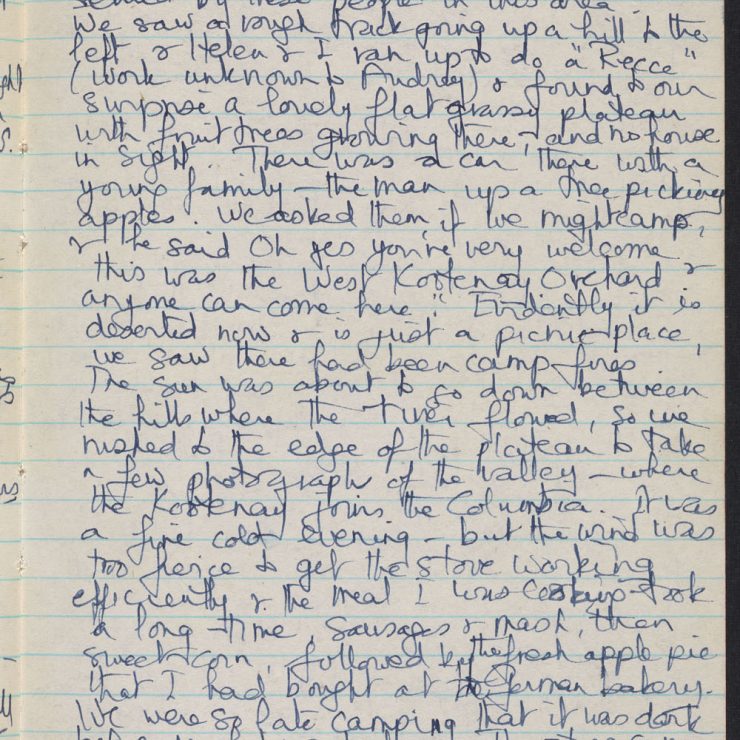 by these people in this area.
We saw a rough track going up a hill to the
left & Helen & I ran up to do a "Recce"
(work unknown to Audrey) & found to our
surprise a lovely flat grassy plateau
with fruit trees growing there, and no house
in sight. There was a car there with a
young family – the man up a tree picking
apples. We asked them if we might camp,
& he said Oh yes you're very welcome
this was the West Kootenay Orchard &
anyone can come here." Evidently it is
deserted now & is just a picnic place,
we saw there had been camp fires.
The sun was about to go down between
the hills where the river flowed, so we
rushed to the edge of the plateau to take
a few photograph of the valley – where
the Kootenay joins the Columbia. It was
a fine cold evening – but the wind was
too fierce to get the stove working
efficiently & the meal I was cooking took
a long time, sausages & mash, then
sweet corn, followed by the fresh apple pie
that I had bought at the German bakery.
We were so late camping that it was dark